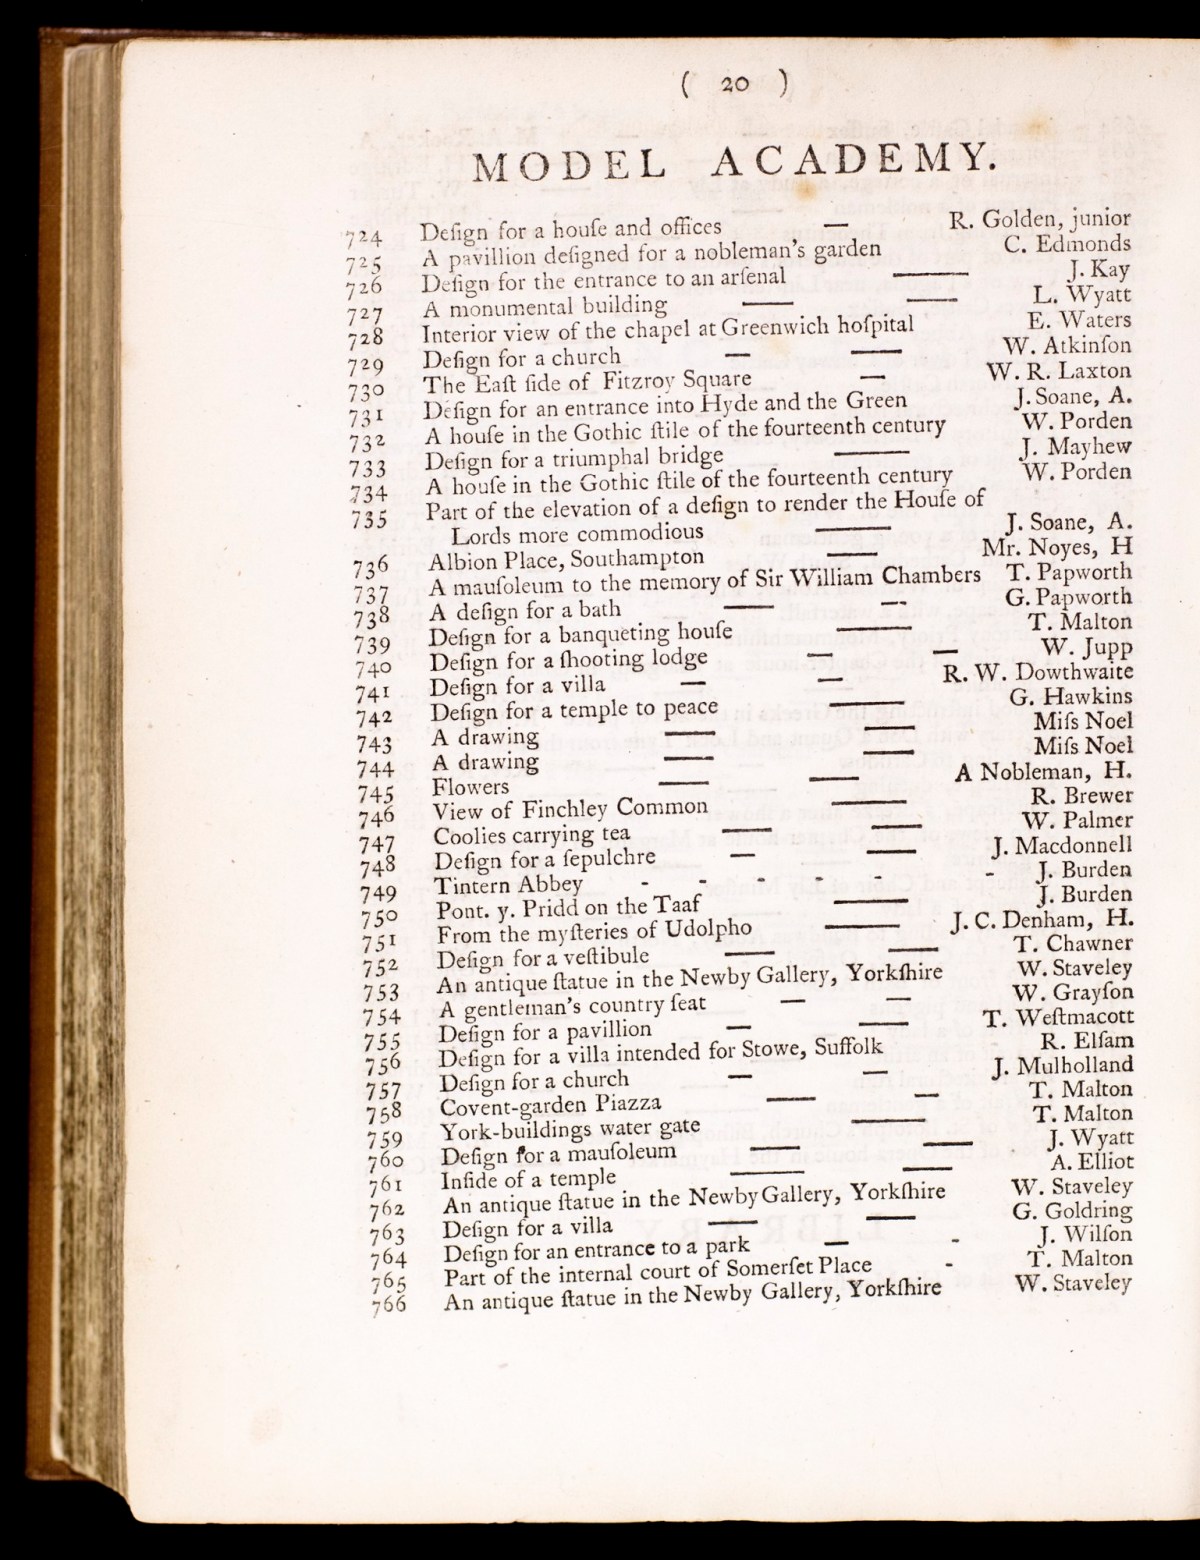 ( 20 )
MODEL ACADEMY.
724 Deſign for a houſe and offices — R. Golden, junior
725 A pavillion deſigned for a nobleman's garden C. Edmonds
726 Deſign for the entrance to an arſenal — J. Kay
727 A monumental building — — L. Wyatt
728 Interior view of the chapel at Greenwich hoſpital E. Waters
729 Deſign for a church — — W. Atkinſon
730 The Eaſt ſide of Fitzroy Square — W. R. Laxton
731 Deſign for an entrance into Hyde and the Green J. Soane, A.
732 A houſe in the Gothic ſtile of the fourteenth century W. Porden
733 Deſign for a triumphal bridge — J. Mayhew
734 A houſe in the Gothic ſtile of the fourteenth century W. Porden
735 Part of the elevation of a deſign to render the Houſe of
Lords more commodious — J. Soane, A.
736 Albion Place, Southampton — Mr. Noyes, H
737 A mauſoleum to the memory of Sir William Chambers T. Papworth
738 A deſign for a bath — — G. Papworth
739 Deſign for a banqueting houſe — T. Malton
740 Deſign for a ſhooting lodge — — W. Jupp
741 Deſign for a villa — — R. W. Dowthwaite
742 Deſign for a temple to peace — G. Hawkins
743 A drawing — — Miſs Noel
744 A drawing — — Miſs Noel
745 Flowers — — A Nobleman, H.
746 View of Finchley Common — R. Brewer
747 Coolies carrying tea — — W. Palmer
748 Deſign for a ſepulchre — — J. Macdonnell
749 Tintern Abbey - - - - - - J. Burden
750 Pont. y. Pridd on the Taaf — J. Burden
751 From the myſteries of Udolpho — J. C. Denham, H.
752 Deſign for a veſtibule — — T. Chawner
753 An antique ſtatue in the Newby Gallery, Yorkſhire W. Staveley
754 A gentleman's country ſeat — — W. Grayſon
755 Deſign for a pavillion — — T. Weſtmacott
756 Deſign for a villa intended for Stowe, Suffolk R. Elſam
757 Deſign for a church — — J. Mulholland
758 Covent-garden Piazza — — T. Malton
759 York-buildings water gate — T. Malton
760 Deſign for a mauſoleum — — J. Wyatt
761 Inſide of a temple — — A. Elliot
762 An antique ſtatue in the Newby Gallery, Yorkſhire W. Staveley
763 Deſign for a villa — — G. Goldring
764 Deſign for an entrance to a park — - J. Wilſon
765 Part of the internal court of Somerſet Place - T. Malton
766 An antique ſtatue in the Newby Gallery, Yorkſhire W. Staveley